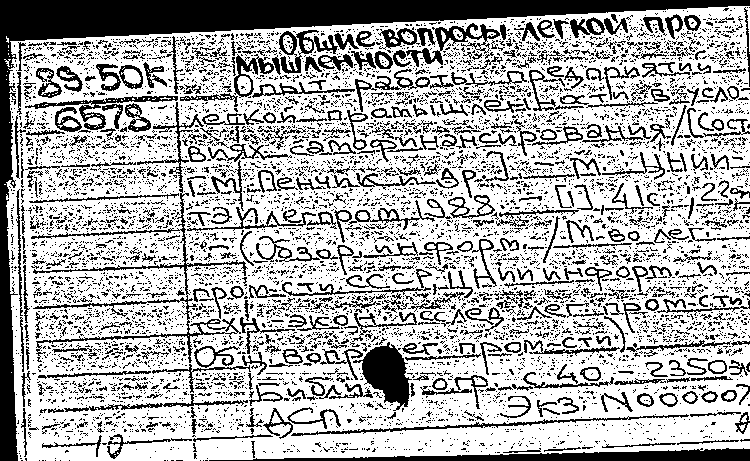 Общие вопросы легкой про-
мышленности
89-50к
6578
Опыт работы предприятий
легкой промышленности в усло-
виях самофинансирования / [Сост.
Г.М. Пенчик и др.] - М.: ЦНИИ-
ТЭИлегпром, 1988. - [1], 41 с.; 22
- (Обзор. информ. / М-во лег.
пром-сти СССР, ЦНИИ информ. и
техн.-экон. исслед. лег. пром-сти.
Общ. вопр. лег. пром-сти).
Библиогр.: с. 40. - 2350 эк
ДСП. Экз. N000007
10